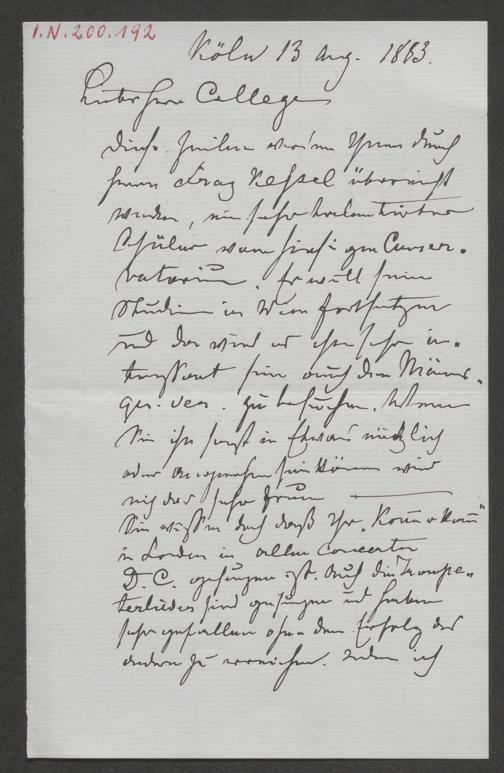 I.N.200.192
Köln 13 Aug. 1883.
Lieber Herr College
Diese Zeilen werden Ihnen durch
Herrn Franz Kessel überreicht
werden, ein sehr talentirter
Schüler vom hiesigen Conser-
vatorium. Er will seine
Studien in Wien fortsetzen
und da wird es ihm sehr in-
teressant sein auch den Männer-
ges. ver. zu besuchen. Wenn
Sie ihm sonst in Etwas nützlich
oder angenehm sein können wird
mich das sehr freuen
Sie wissen doch daß Ihr "Komm o Komm"
in London in allen Concerten
D.C. gesungen ist. Auch die Trompe-
terlieder sind gesungen und haben
sehr gefallen ohne den Erfolg des
andern zu erreichen. Indem ich